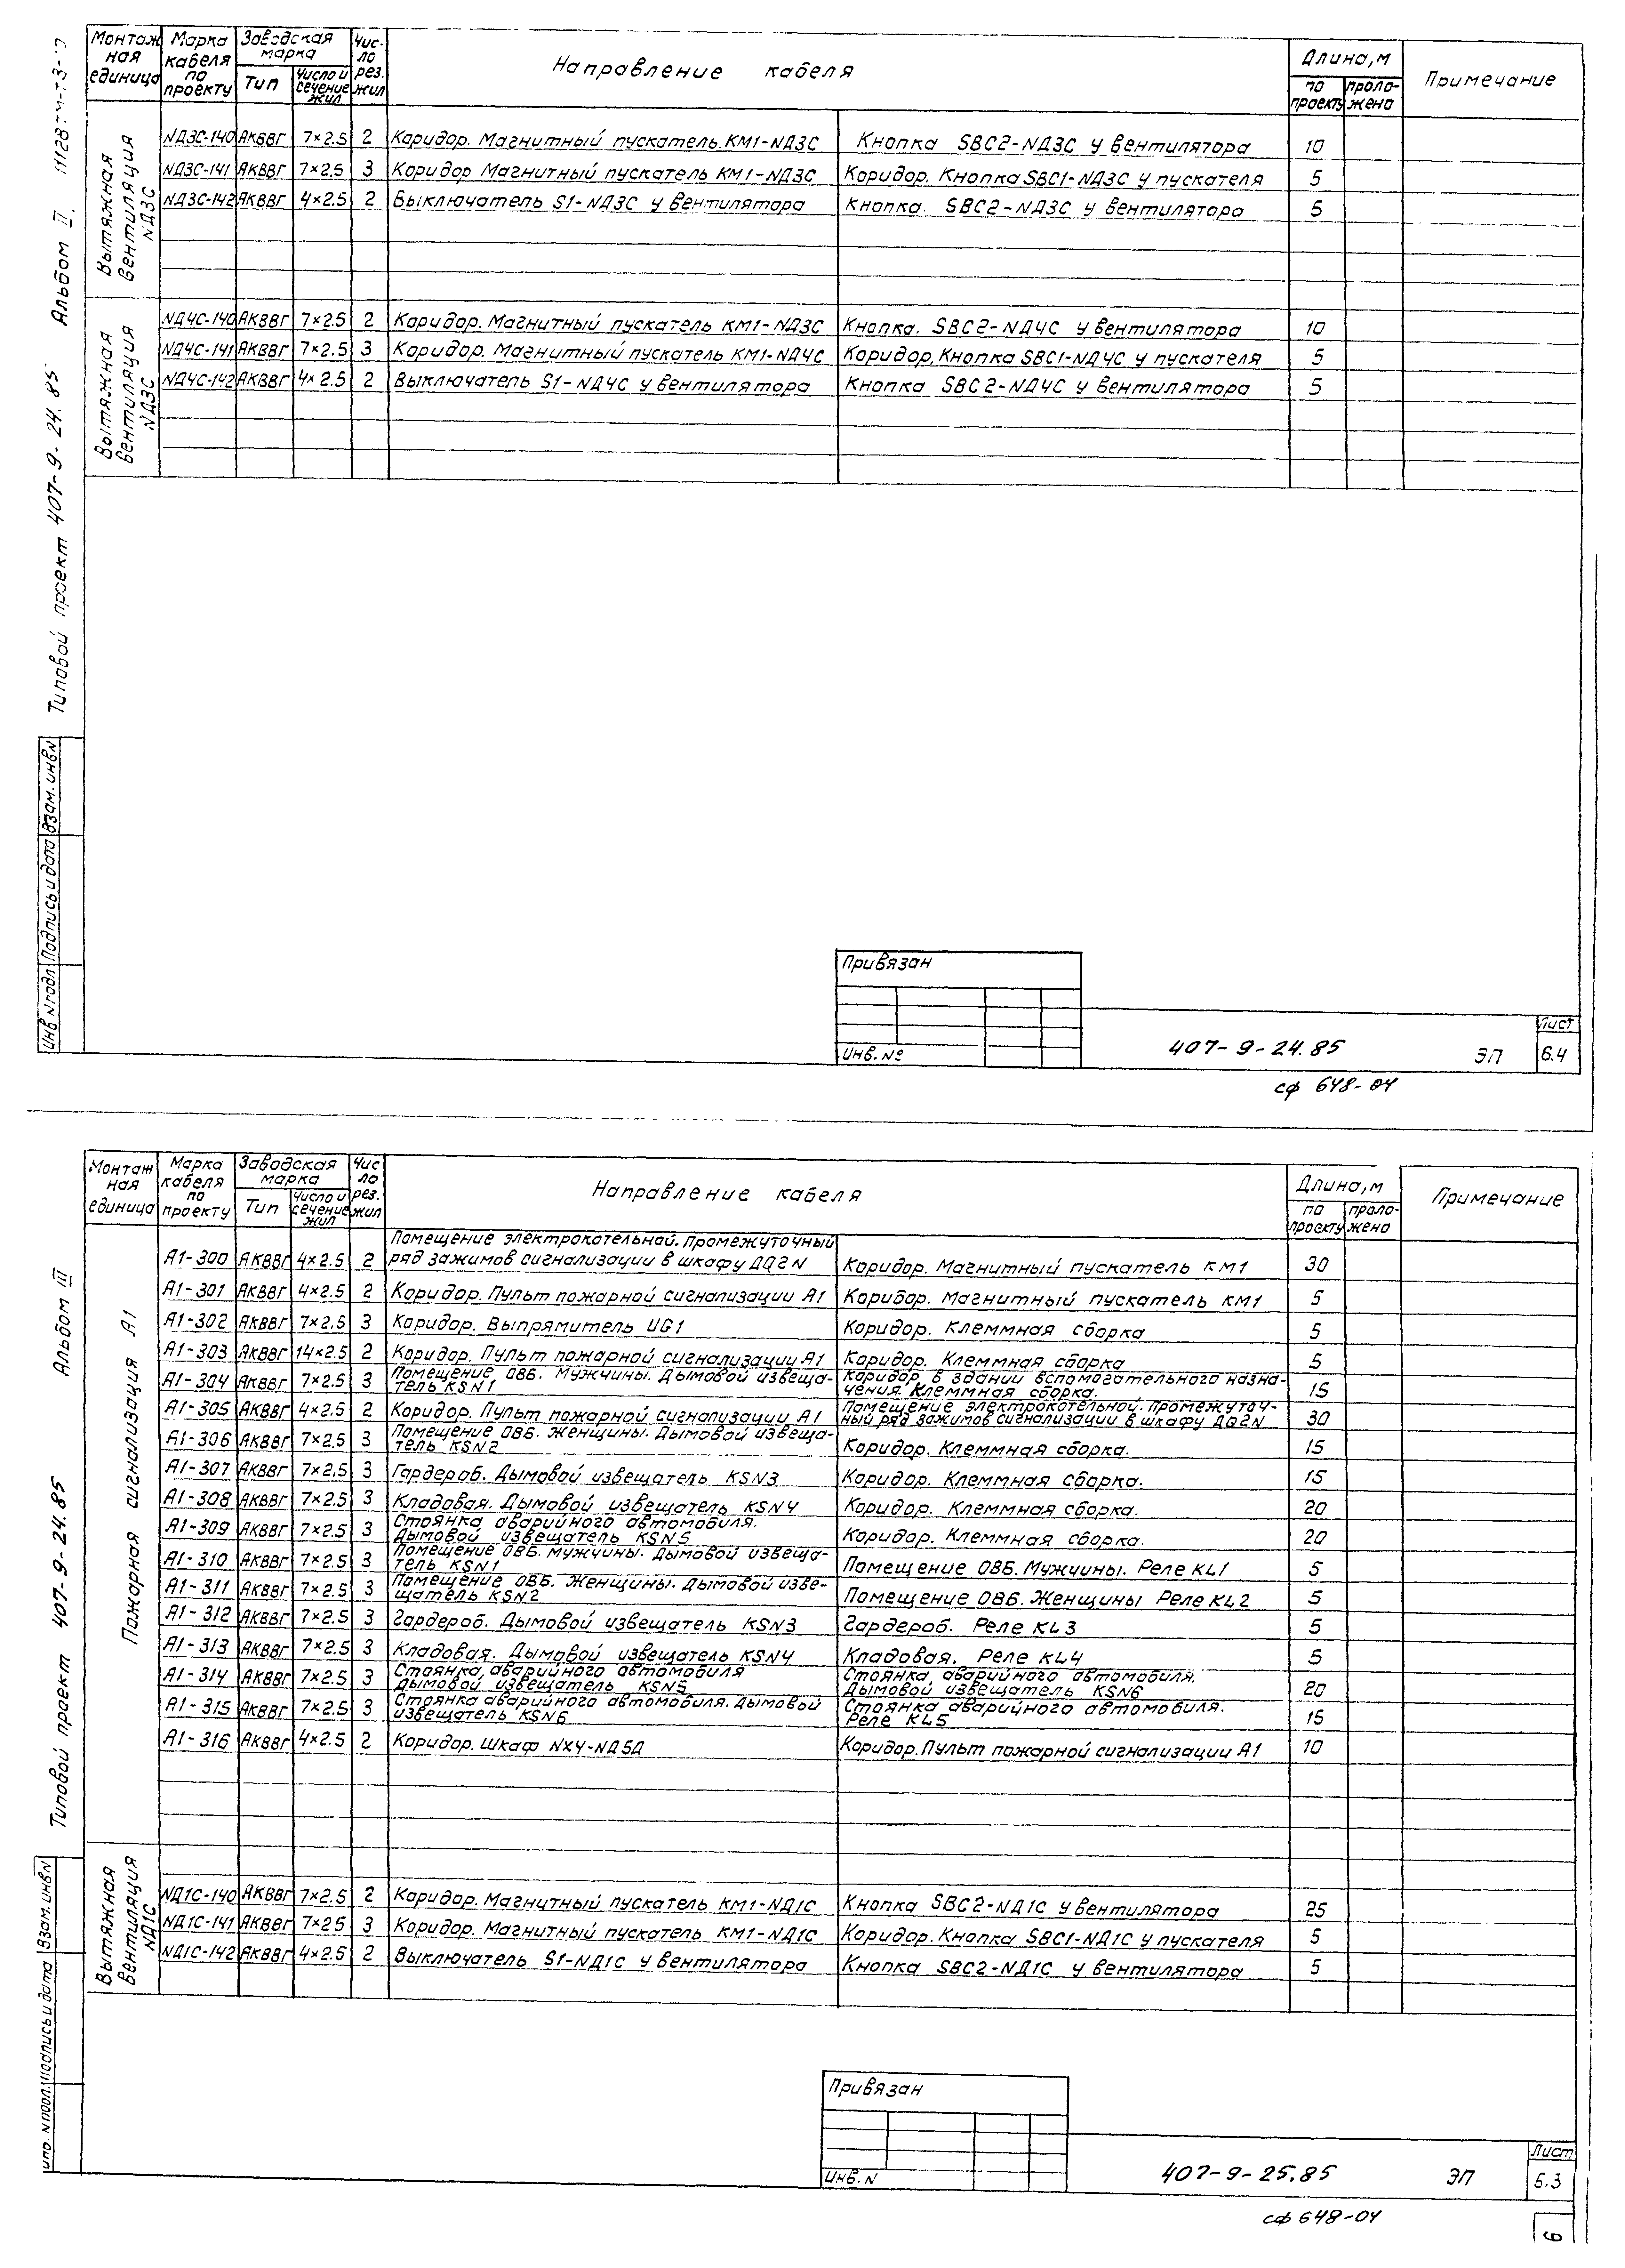 Монтажная единица | Марка кабеля по проекту | Заводская марка | Число рез. жил | Направление кабеля | Длина, м | Примечание
Тип | Число и сечение жил | по проекту | проложено
Вытяжная вентиляция NДЗС
NДЗС-140 | АКВВГ | 7×2.5 | 2 | Коридор. Магнитный пускатель. КМ1-NДЗС | Кнопка SBC2-NДЗС у вентилятора | 10
NДЗС-141 | АКВВГ | 7×2.5 | 3 | Коридор Магнитный пускатель КМ1-NДЗС | Коридор. Кнопка SBC1-NДЗС у пускателя | 5
NДЗС-142 | АКВВГ | 4×2.5 | 2 | Выключатель S1-NДЗС у вентилятора | Кнопка. SBC2-NДЗС у вентилятора | 5
Вытяжная вентиляция NДЗС
NД4С-140 | АКВВГ | 7×2.5 | 2 | Коридор. Магнитный пускатель КМ1-NДЗС | Кнопка. SBC2-NД4С у вентилятора | 10
NД4С-141 | АКВВГ | 7×2.5 | 3 | Коридор. Магнитный пускатель КМ1-NД4С | Коридор. Кнопка SBC1-NД4С у пускателя | 5
NД4С-142 | АКВВГ | 4×2.5 | 2 | Выключатель S1-NД4С у вентилятора | Кнопка SBC2-NД4С у вентилятора | 5
Типовой проект 407-9-24.85 Альбом II.
Инв N подл | Подпись и дата | Взам. инв N
Привязан
Инв. №
407-9-24.85 ЭП
Лист
6.4
сф 648-04
Монтажная единица | Марка кабеля по проекту | Заводская марка | Число рез. жил | Направление кабеля | Длина, м | Примечание
Тип | Число и сечение жил | по проекту | проложено
Пожарная сигнализация А1
А1-300 | АКВВГ | 4×2.5 | 2 | Помещение электрокотельной. Промежуточный ряд зажимов сигнализации в шкафу ДQ2N | Коридор. Магнитный пускатель КМ1 | 30
А1-301 | АКВВГ | 4×2.5 | 2 | Коридор. Пульт пожарной сигнализации А1 | Коридор. Магнитный пускатель КМ1 | 5
А1-302 | АКВВГ | 7×2.5 | 3 | Коридор. Выпрямитель UG1 | Коридор. Клеммная сборка | 5
А1-303 | АКВВГ | 14×2.5 | 2 | Коридор. Пульт пожарной сигнализации А1 | Коридор. Клеммная сборка | 5
А1-304 | АКВВГ | 7×2.5 | 3 | Помещение ОВБ. Мужчины. Дымовой извещатель KSN1 | Коридор в здании вспомогательного назначения. Клеммная сборка. | 15
А1-305 | АКВВГ | 4×2.5 | 2 | Коридор. Пульт пожарной сигнализации А1 | Помещение электрокотельной. Промежуточный ряд зажимов сигнализации в шкафу ДQ2N | 30
А1-306 | АКВВГ | 7×2.5 | 3 | Помещение ОВБ. Женщины. Дымовой извещатель KSN2 | Коридор. Клеммная сборка. | 15
А1-307 | АКВВГ | 7×2.5 | 3 | Гардероб. Дымовой извещатель KSN3 | Коридор. Клеммная сборка. | 15
А1-308 | АКВВГ | 7×2.5 | 3 | Кладовая. Дымовой извещатель KSN4 | Коридор. Клеммная сборка. | 20
А1-309 | АКВВГ | 7×2.5 | 3 | Стоянка аварийного автомобиля. Дымовой извещатель KSN5 | Коридор. Клеммная сборка. | 20
А1-310 | АКВВГ | 7×2.5 | 3 | Помещение ОВБ. Мужчины. Дымовой извещатель KSN1 | Помещение ОВБ. Мужчины. Реле KL1 | 5
А1-311 | АКВВГ | 7×2.5 | 3 | Помещение ОВБ. Женщины. Дымовой извещатель KSN2 | Помещение ОВБ. Женщины Реле KL2 | 5
А1-312 | АКВВГ | 7×2.5 | 3 | Гардероб. Дымовой извещатель KSN3 | Гардероб. Реле KL3 | 5
А1-313 | АКВВГ | 7×2.5 | 3 | Кладовая. Дымовой извещатель KSN4 | Кладовая. Реле KL4 | 5
А1-314 | АКВВГ | 7×2.5 | 3 | Стоянка аварийного автомобиля Дымовой извещатель KSN5 | Стоянка аварийного автомобиля. Дымовой извещатель KSN6 | 20
А1-315 | АКВВГ | 7×2.5 | 3 | Стоянка аварийного автомобиля. Дымовой извещатель KSN6 | Стоянка аварийного автомобиля. Реле KL5 | 15
А1-316 | АКВВГ | 4×2.5 | 2 | Коридор. Шкаф NX4-NД5Д | Коридор. Пульт пожарной сигнализации А1 | 10
Вытяжная вентиляция NД1С
NД1С-140 | АКВВГ | 7×2.5 | 2 | Коридор. Магнитный пускатель КМ1-NД1С | Кнопка SBC2-NД1С у вентилятора | 25
NД1С-141 | АКВВГ | 7×2.5 | 3 | Коридор. Магнитный пускатель КМ1-NД1С | Коридор. Кнопка SBC1-NД1С у пускателя | 5
NД1С-142 | АКВВГ | 4×2.5 | 2 | Выключатель S1-NД1С у вентилятора | Кнопка SBC2-NД1С у вентилятора | 5
Типовой проект 407-9-24.85 Альбом III
Инв. N подл. | Подпись и дата | Взам. инв N
Привязан
Инв. N
407-9-25.85 ЭП
Лист
6.3
сф 648-04
6